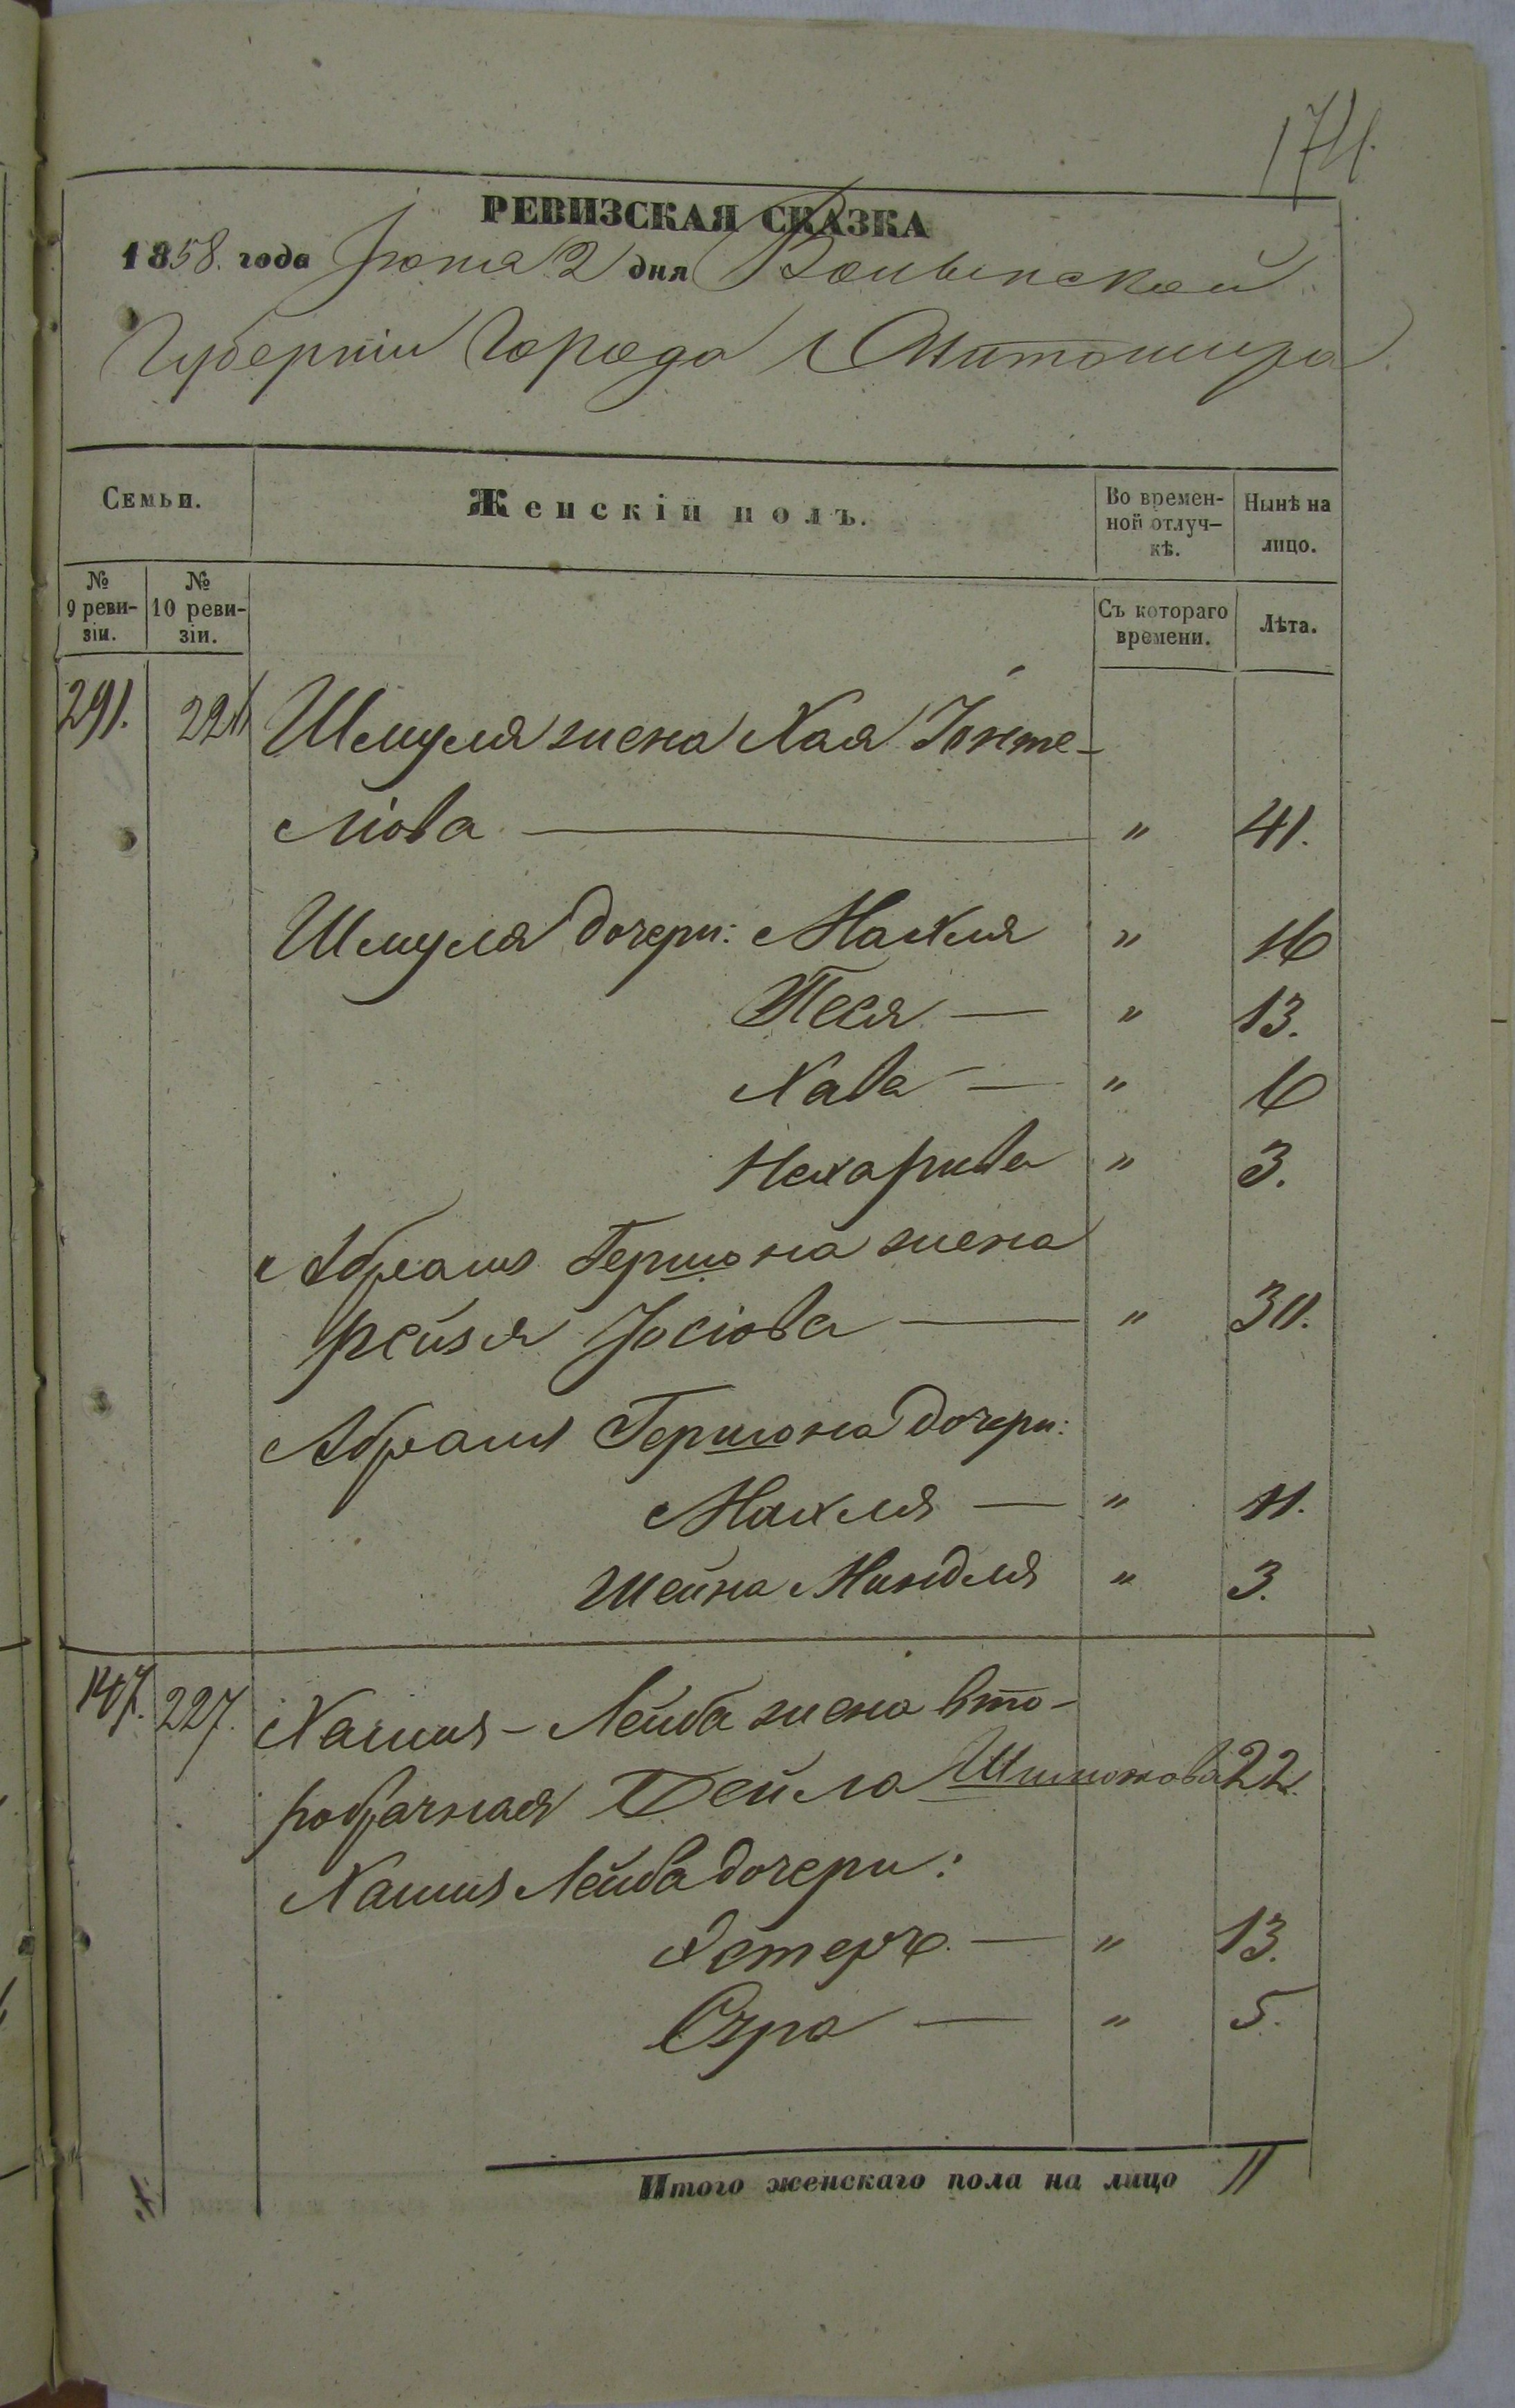 174.
РЕВИЗСКАЯ СКАЗКА
1858. года Іюня 2 дня Волынской
Губерніи Города Житомира
Семьи.
Женскій полъ.
Во времен-
ной отлуч-
кѣ.
Нынѣ на
лицо.
№
9 реви-
зіи.
№
10 реви-
зіи.
Съ котораго
времени.
Лѣта.
291. Шмуля жена Хая
" 41.
Шмуля дочери: Махля " 16
Песя — " 13.
Хава — " 6
Нехарива " 3.
Абрамъ Гершона жена
Рейзя Іосіова — " 30.
Абрамъ Гершона дочери:
Махля — " 11.
Шейна Миндля " 3.
147. 227. Хаимъ-Лейба жена вто-
робрачная Бейла Шимонова 22.
Хаимъ Лейба дочери:
Эстеръ — " 13.
Сура — " 5.
Итого женскаго пола на лицо 11